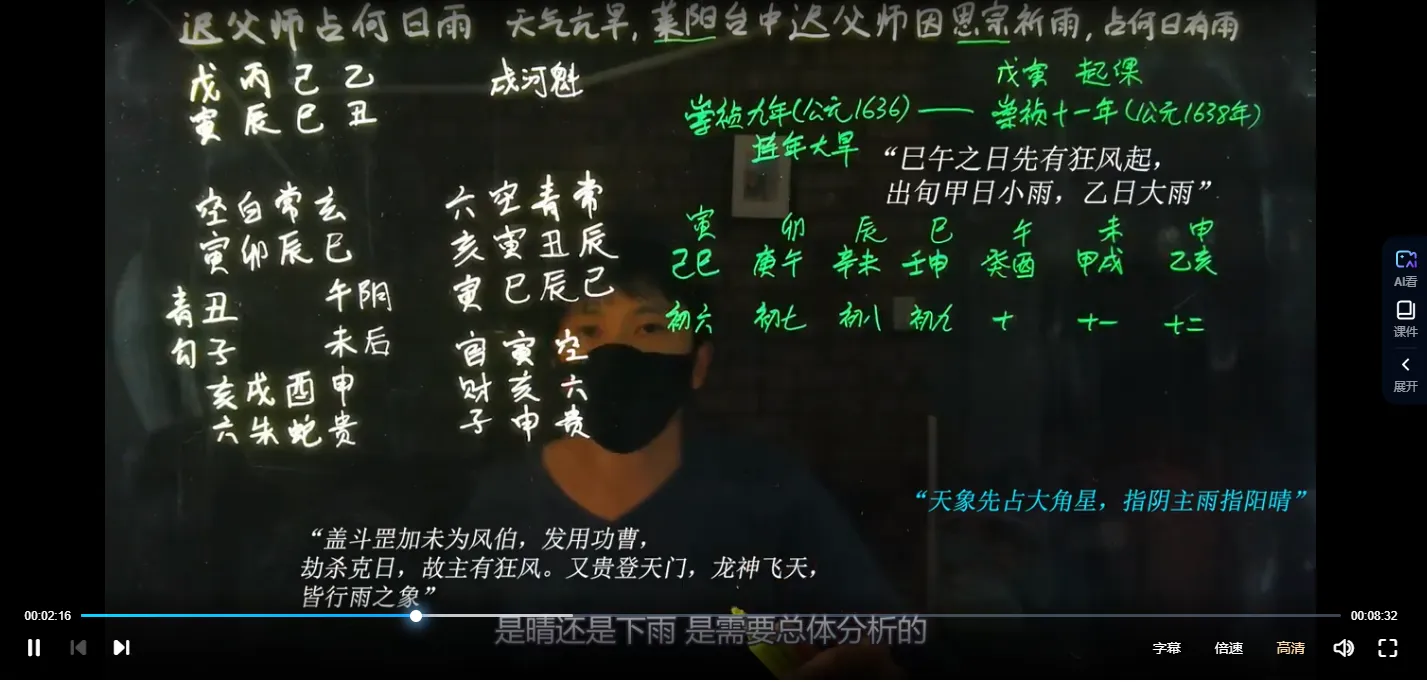 迟父师占何日雨 天气亢旱,莱阳台中迟父师因思宗祈雨,占何日有雨
戊 丙 己 乙
寅 辰 巳 丑
戌河魁
戊寅 起课
崇祯九年(公元1636)——崇祯十一年(公元1638年)
连年大旱
“巳午之日先有狂风起，
出旬甲日小雨，乙日大雨”
空 白 常 玄
寅 卯 辰 巳
青 丑 午 阴
勾 子 未 后
亥 戌 酉 申
六 朱 蛇 贵
六 空 青 常
亥 寅 丑 辰
寅 巳 辰 己
官 寅 空
财 亥 六
子 申 贵
寅 卯 辰 巳 午 未 申
己巳 庚午 辛未 壬申 癸酉 甲戌 乙亥
初六 初七 初八 初九 十 十一 十二
“天象先占大角星，指阴主雨指阳晴”
“盖斗罡加未为风伯，发用功曹，
劫杀克日，故主有狂风。又贵登天门，龙神飞天，
皆行雨之象”
是晴还是下雨 是需要总体分析的
AI看
课件
展开
00:02:16
00:08:32
字幕 倍速 高清